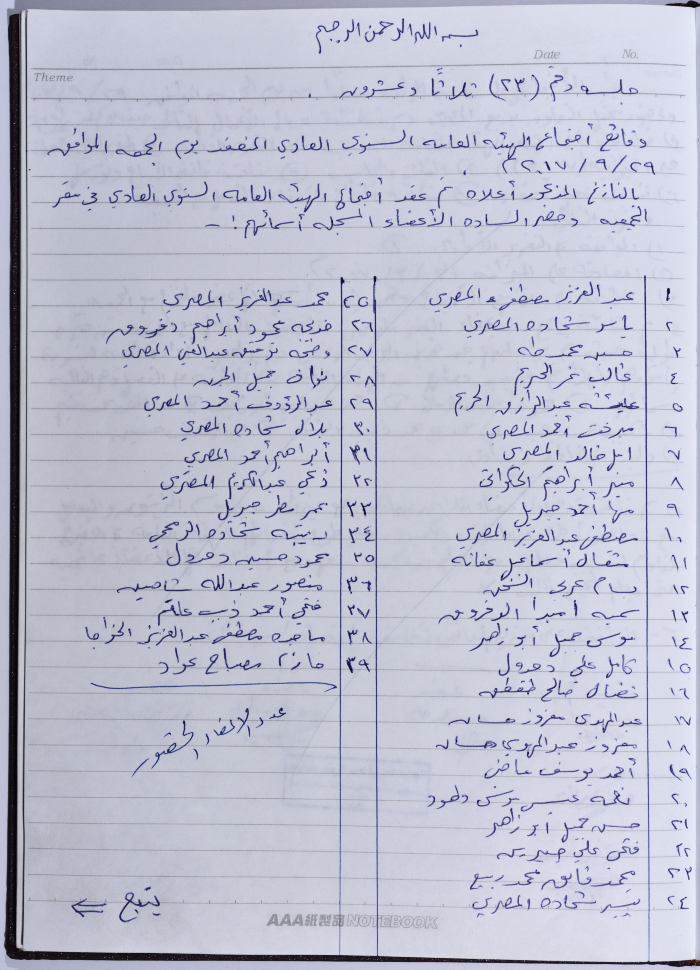 بسم الله الرحمن الرحيم
Date No.
Theme
جلسه رقم (٢٣) ثلاثاً وعشرون .
وقائع أجتماع الهيئه العامه السنوي العادي المنعقد يوم الجمعه الموافق
٢٩ / ٩ / ٢٠١٧ م .
بالتاريخ المذكور أعلاه تم عقد أجتماع الهيئه العامه السنوي العادي في مقر
الجمعيه وحضر الساده الأعضاء المسجله أسمائهم : -
١ عبد العزيز مصطفى المصري
٢ ياسر شحاده المصري
٣ حسين محمد طه
٤ غالب نمر
٥ عائشه عبد الرازق
٦ ميرفت أحمد المصري
٧ امل خالد المصري
٨ منير أبراهيم الحكواتي
٩ مها أحمد جبريل
١٠ مصطفى عبد العزيز المصري
١١ مثقال أسماعيل عفانه
١٢ بسام عربي
١٣ سميه
١٤ موسى جميل أبو زاهر
١٥ كامل علي
١٦ نضال صالح طقطق
١٧ عبد المهدي معزوز حسان
١٨ معزوز عبد المهدي حسان
١٩ أحمد يوسف ماضي
٢٠ نعمه عيسى يونس
٢١ حسن جميل أبو زاهر
٢٢ فتحي علي
٢٣ محمد فايق محمد ربيع
٢٤ يسير شحاده المصري
٢٥ محمد عبد العزيز المصري
٢٦ خديجه محمود أبراهيم
٢٧ وضحه توفيق عبد الغني المصري
٢٨ نواف جميل
٢٩ عبد الرؤوف أحمد المصري
٣٠ بلال شحاده المصري
٣١ أبراهيم أحمد المصري
٣٢ عبد الكريم المصري
٣٣ عمر مطر جبريل
٣٤ شحاده
٣٥ محمود حسين
٣٦ منصور عبد الله شاهين
٣٧ فتحي أحمد ذيب علقم
٣٨ ماجده مصطفى عبد العزيز الخواجا
٣٩ مازن مصباح عواد
عدد الاعضاء الحضور
يتبع ⇐
AAA紙製品 NOTEBOOK